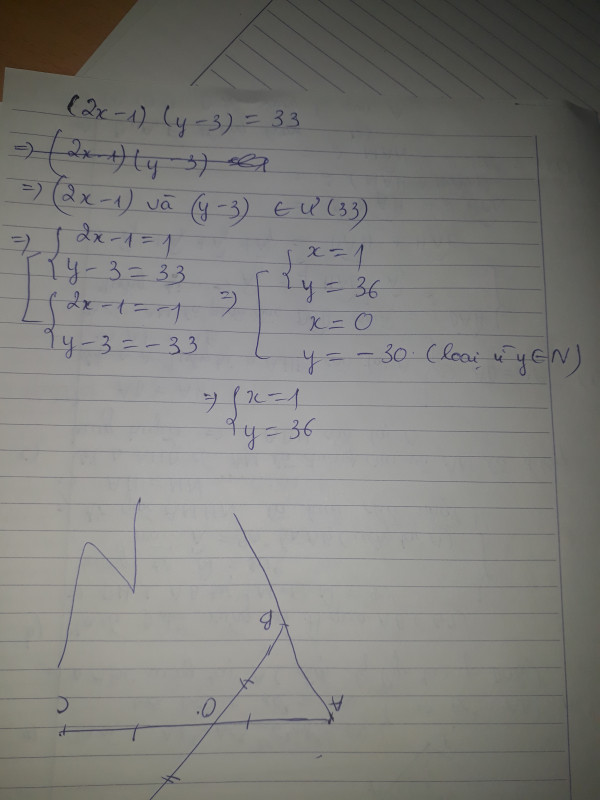 (2x-1) (y-3) = 33
=> (2x-1) (y-3)
=> (2x-1) và (y-3) ∈ Ư(33)
=> [ { 2x-1 = 1
y-3 = 33
{ 2x-1 = -1
y-3 = -33
=> [ { x = 1
y = 36
x = 0
y = -30 (loại vì y ∈ N)
=> { x = 1
y = 36
B
C
O
A